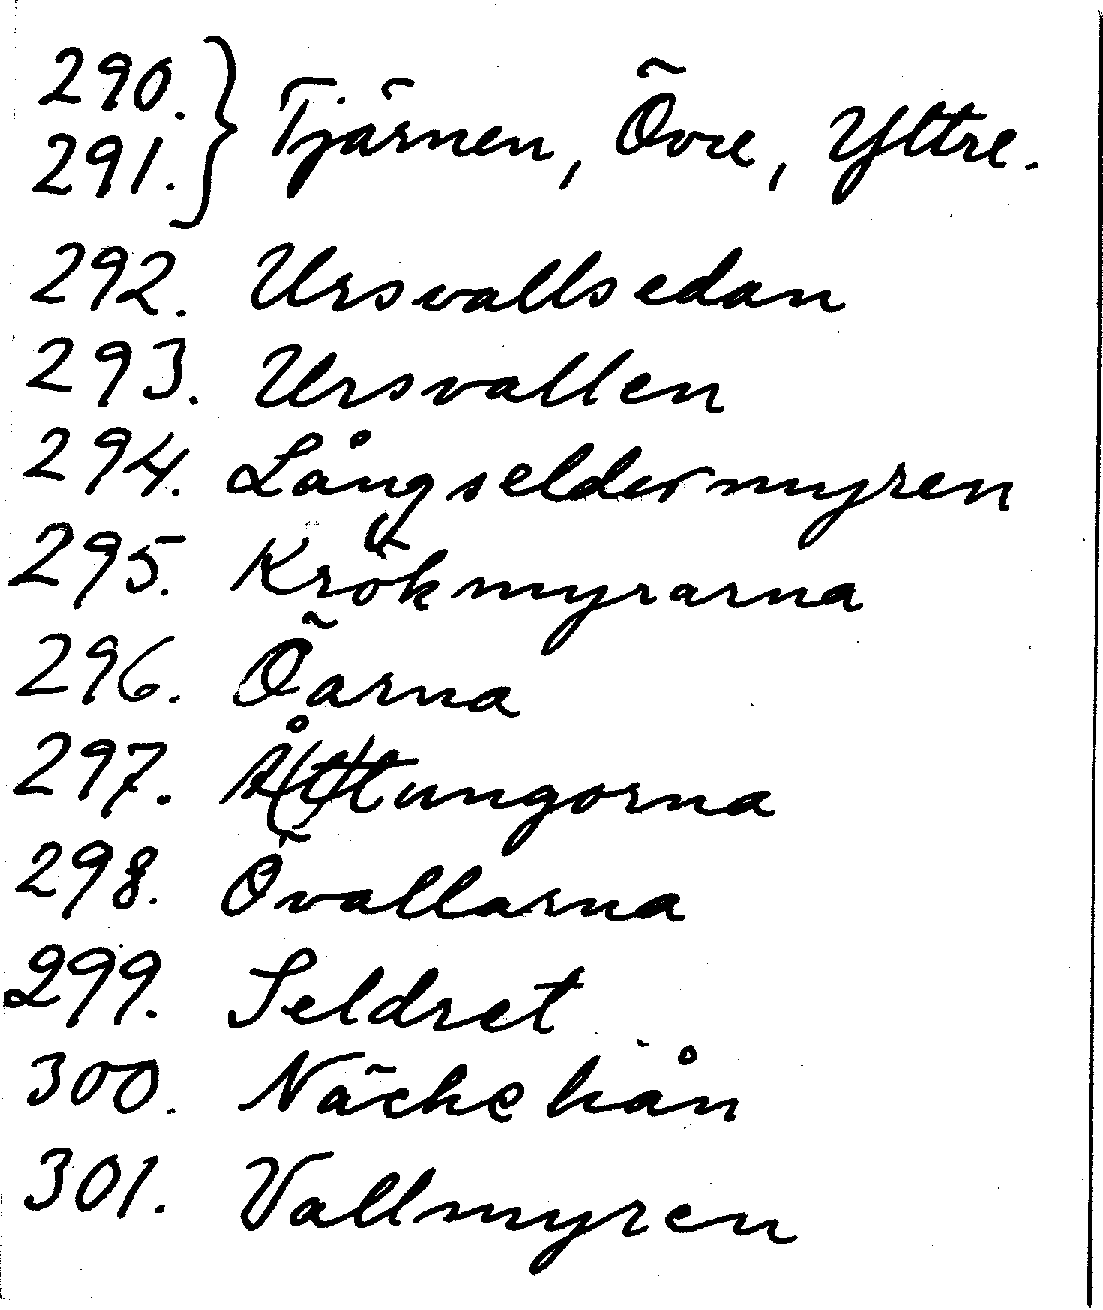 290.
291. } Tjärnen, Övre, Yttre.
292. Ursvallsedan
293. Ursvallen
294. Långseldermyren
295. Krökmyrarna
296. Öarna
297. Å(t)tungorna
298. Övallarna
299. Seldret
300. Näckehån
301. Vallmyren